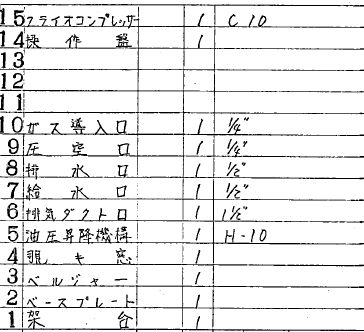 15 クライオコンプレッサー 1 C10
14 操作盤 1
13
12
11
10 ガス導入口 1 1/4"
9 圧空口 1 1/4"
8 排水口 1 1/2"
7 給水口 1 1/2"
6 排気ダクト口 1 1 1/2"
5 油圧昇降機構 1 H-10
4 覗キ窓 1
3 ベルジャー 1
2 ベースプレート 1
1 架台 1